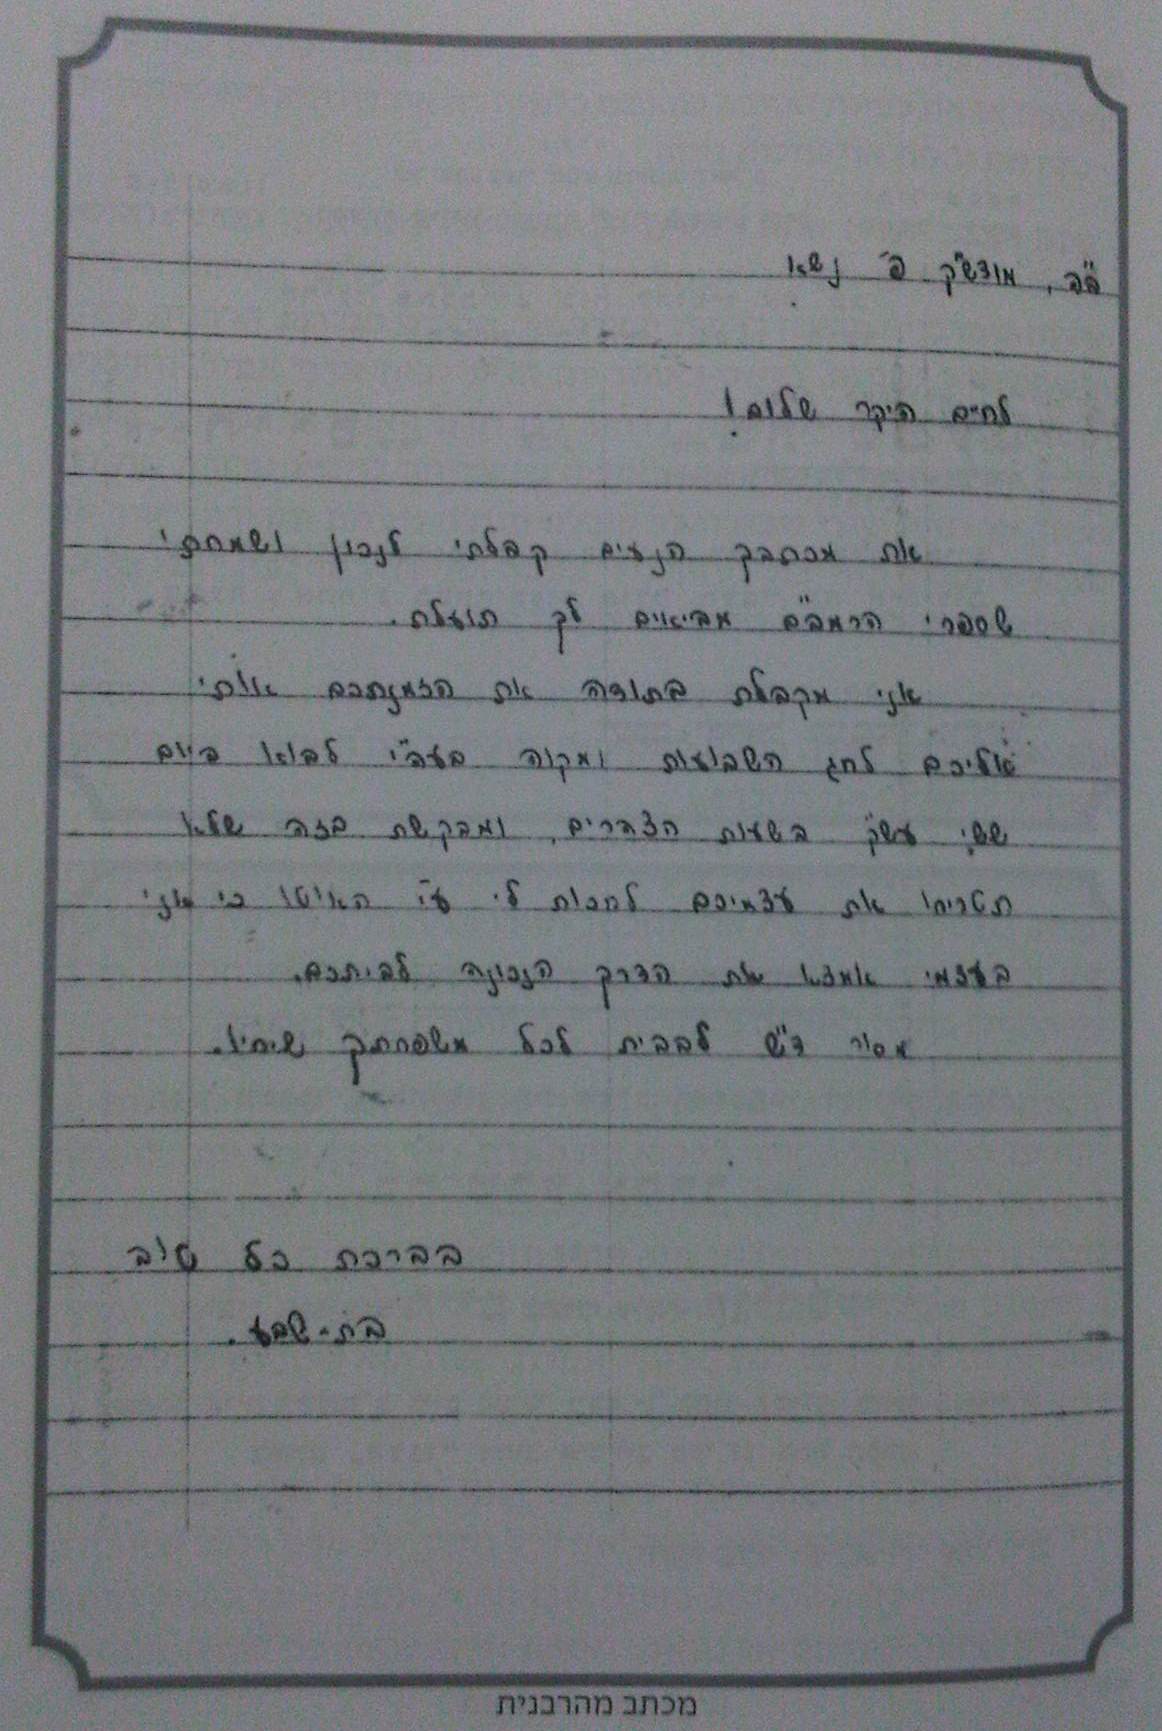 ב"ה, מוצש"ק פ' נשא
לחיים היקר שלום!
את מכתבך הנעים קבלתי לנכון ושמחתי
שספרי הרמב"ם מביאים לך תועלת.
אני מקבלת בתודה את הזמנתכם אותי
אליכם לחג השבועות ומקוה בעה"י לבוא ביום
ששי עש"ק בשעות הצהרים, ומבקשת בזה שלא
תטריחו את עצמיכם לחכות לי ע"י האוטו כי אני
בעצמי אמצא את הדרך הנכונה לביתכם.
מסור ד"ש לבבית לכל משפחתך שיחיו.
בברכת כל טוב
בת-שבע.
מכתב מהרבנית